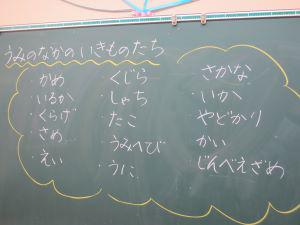 うみのなかのいきものたち
・かめ
・いるか
・くらげ
・さめ
・えい
・くじら
・しゃち
・たこ
・うみへび
・うに
・さかな
・いか
・やどかり
・かい
・じんべえざめ